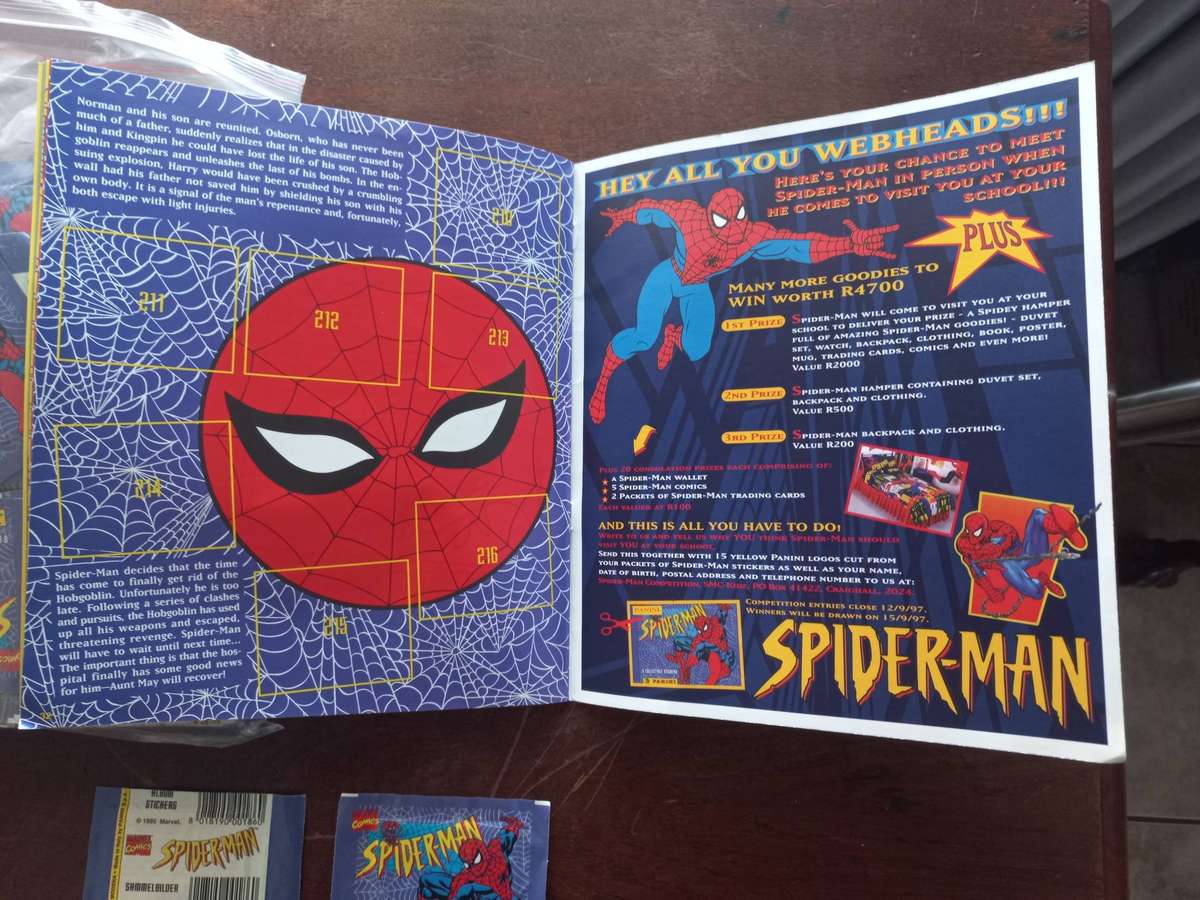 Norman and his son are reunited. Osborn, who has never been
much of a father, suddenly realizes that in the disaster caused by
him and Kingpin he could have lost the life of his son. The Hob-
goblin reappears and unleashes the last of his bombs. In the en-
suing explosion, Harry would have been crushed by a crumbling
wall had his father not saved him by shielding his son with his
own body. It is a signal of the man's repentance and, fortunately,
both escape with light injuries.
210
211
212
213
214
215
216
Spider-Man decides that the time
has come to finally get rid of the
Hobgoblin. Unfortunately he is too
late. Following a series of clashes
and pursuits, the Hobgoblin has used
up all his weapons and escaped,
threatening revenge. Spider-Man
will have to wait until next time...
The important thing is that the hos-
pital finally has some good news
for him—Aunt May will recover!
32
HEY ALL YOU WEBHEADS!!!
HERE'S YOUR CHANCE TO MEET
SPIDER-MAN IN PERSON WHEN
HE COMES TO VISIT YOU AT YOUR
SCHOOL!!!
PLUS
MANY MORE GOODIES TO
WIN WORTH R4700
1ST PRIZE
SPIDER-MAN WILL COME TO VISIT YOU AT YOUR
SCHOOL TO DELIVER YOUR PRIZE - A SPIDEY HAMPER
FULL OF AMAZING SPIDER-MAN GOODIES! - DUVET
SET, WATCH, BACKPACK, CLOTHING, BOOK, POSTER,
MUG, TRADING CARDS, COMICS AND EVEN MORE!
VALUE R2000
2ND PRIZE
SPIDER-MAN HAMPER CONTAINING DUVET SET,
BACKPACK AND CLOTHING.
VALUE R500
3RD PRIZE
SPIDER-MAN BACKPACK AND CLOTHING.
VALUE R200
PLUS 20 CONSOLATION PRIZES EACH COMPRISING OF:
A SPIDER-MAN WALLET
5 SPIDER-MAN COMICS
2 PACKETS OF SPIDER-MAN TRADING CARDS
EACH VALUED AT R100
AND THIS IS ALL YOU HAVE TO DO!
WRITE TO US AND TELL US WHY YOU THINK SPIDER-MAN SHOULD
VISIT YOU AT YOUR SCHOOL.
SEND THIS TOGETHER WITH 15 YELLOW PANINI LOGOS CUT FROM
YOUR PACKETS OF SPIDER-MAN STICKERS AS WELL AS YOUR NAME,
DATE OF BIRTH, POSTAL ADDRESS AND TELEPHONE NUMBER TO US AT:
SPIDER-MAN COMPETITION, SMC-KIDZ, PO BOX 41422, CRAIGHALL, 2024.
COMPETITION ENTRIES CLOSE 12/9/97.
WINNERS WILL BE DRAWN ON 15/9/97.
PANINI
SPIDER-MAN
PANINI
SPIDER-MAN
ALBUM
STICKERS
© 1995 Marvel.
8 018190 001860
MARVEL COMICS
SPIDER-MAN
SAMMELBILDER
MARVEL COMICS
SPIDER-MAN